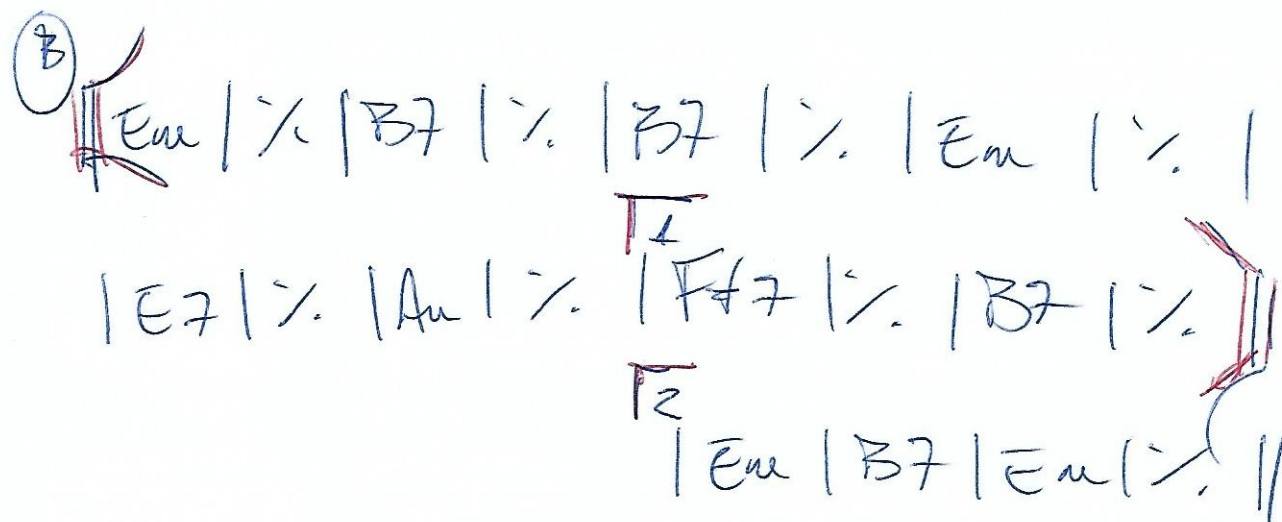 B
Em | % | B7 | % | B7 | % | Em | % |
| E7 | % | Am | % | F#7 | % | B7 | %
1
2
| Em | B7 | Em | % ||